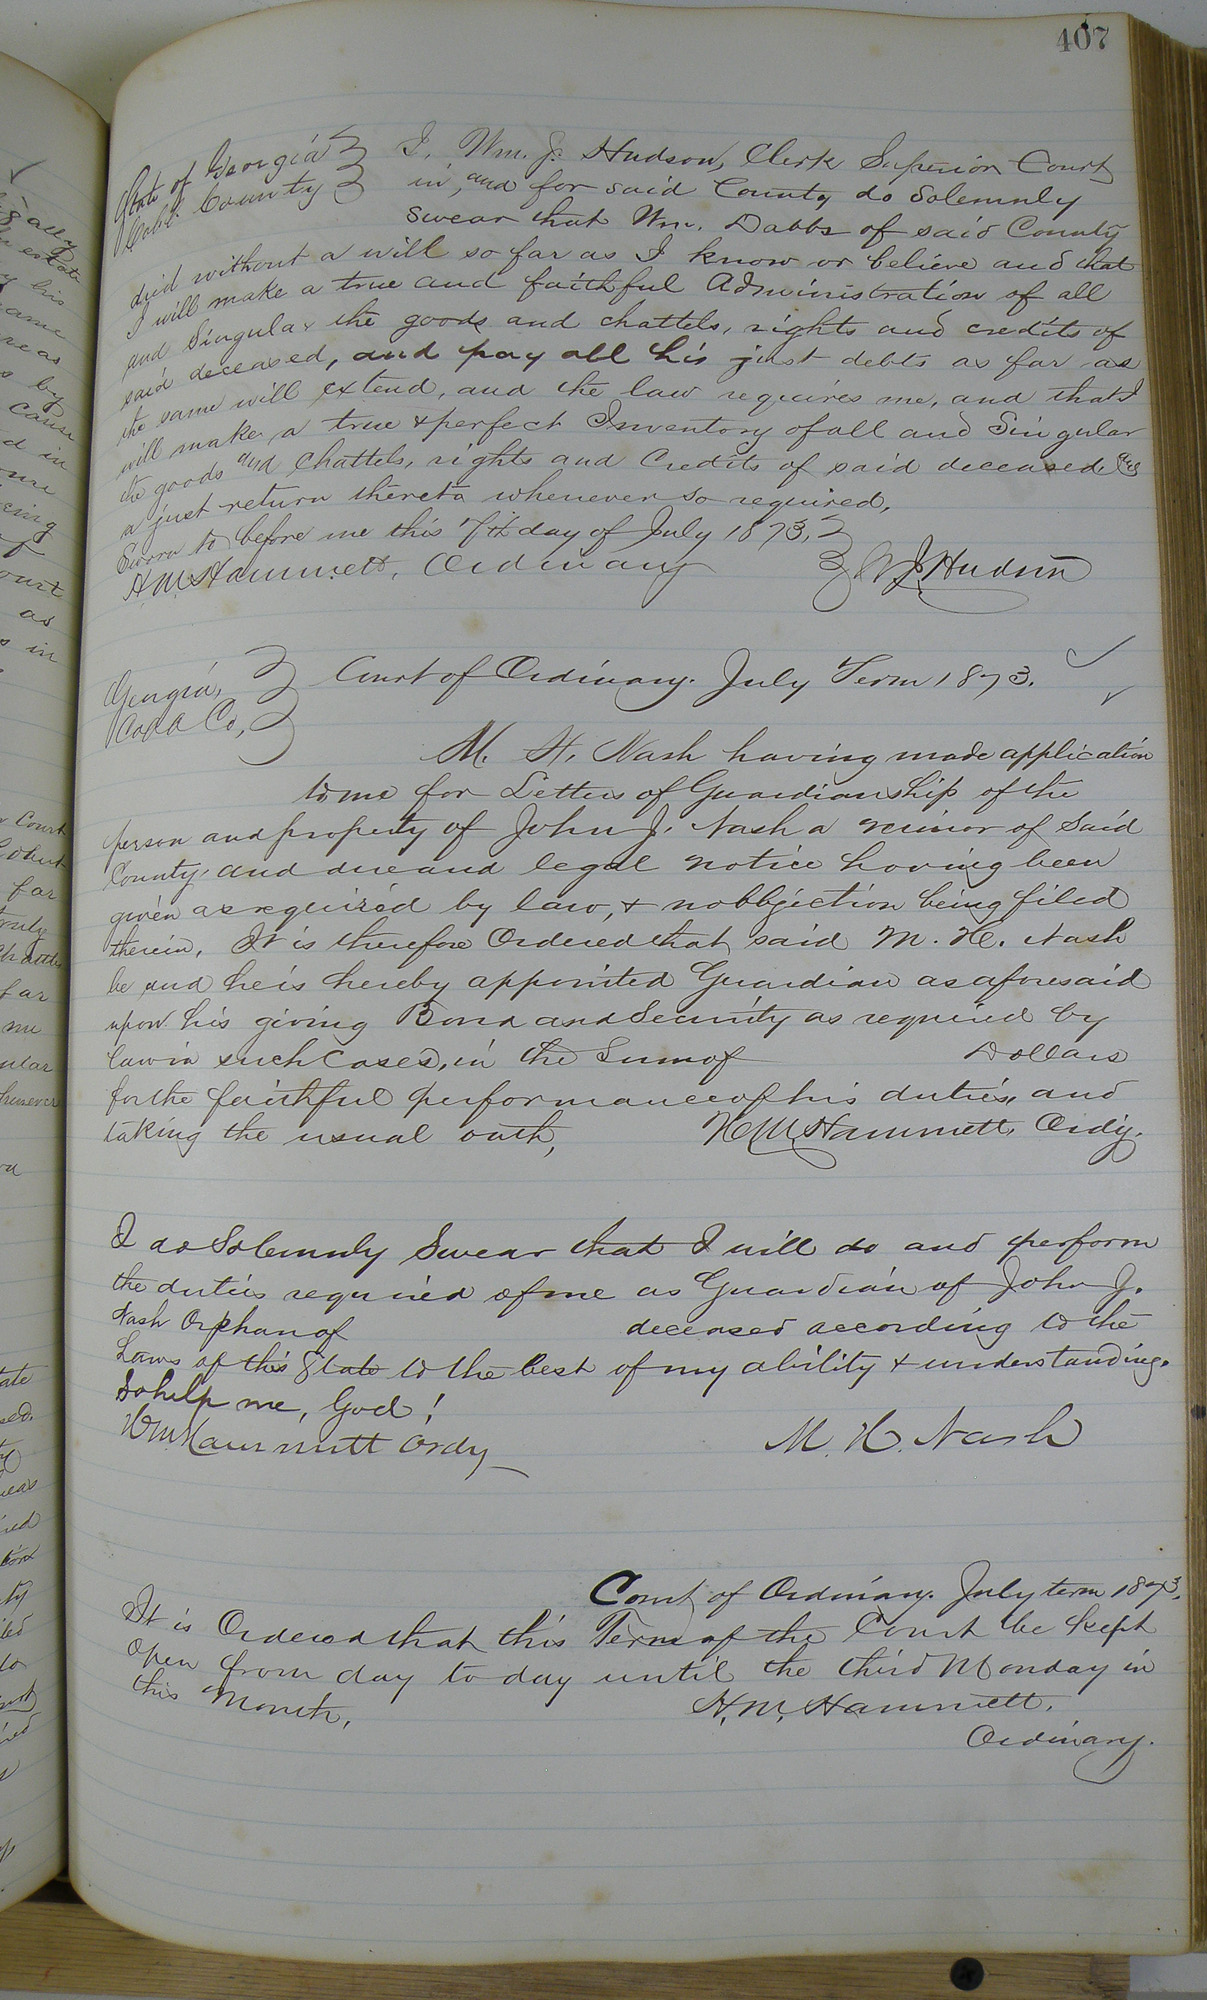 407
State of Georgia
Cobb County
I, Wm. J. Hudson, Clerk Superior Court
in, and for said County do Solemnly
swear that Wm. Dabbs of said County
died without a will so far as I know or believe and that
I will make a true and faithful Administration of all
and Singular the goods and chattels, rights and credits of
said deceased, and pay all his just debts as far as
the same will extend, and the law requires me, and that I
will make a true & perfect Inventory of all and Singular
the goods and Chattels, rights and Credits of said deceased,
a just return thereto whenever so required,
Sworn to before me this 7th day of July 1873,
H M Hammett, Ordinary
W J Hudson
Georgia,
Cobb Co,
Court of Ordinary. July Term 1873.
M. H. Nash having made application
to me for Letters of Guardianship of the
person and property of John J. Nash a minor of Said
County, and due and legal notice having been
given as required by law, & no objection being filed
therein, It is therefore Ordered that said M. H. Nash
be and he is hereby appointed Guardian as aforesaid
upon his giving Bond and Security as required by
law in such Cases, in the Sum of Dollars
for the faithful performance of his duties, and
taking the usual oath,
H M Hammett, Ordy.
I do Solemnly Swear that I will do and perform
the duties required of me as Guardian of John J.
Nash Orphan of deceased according to the
Laws of this State to the best of my ability & understanding.
So help me, God!
H M Hammett Ordy
M. H. Nash
Court of Ordinary. July term 1873.
It is Ordered that this Term of the Court be kept
open from day to day until the third Monday in
this Month,
H. M. Hammett,
Ordinary.